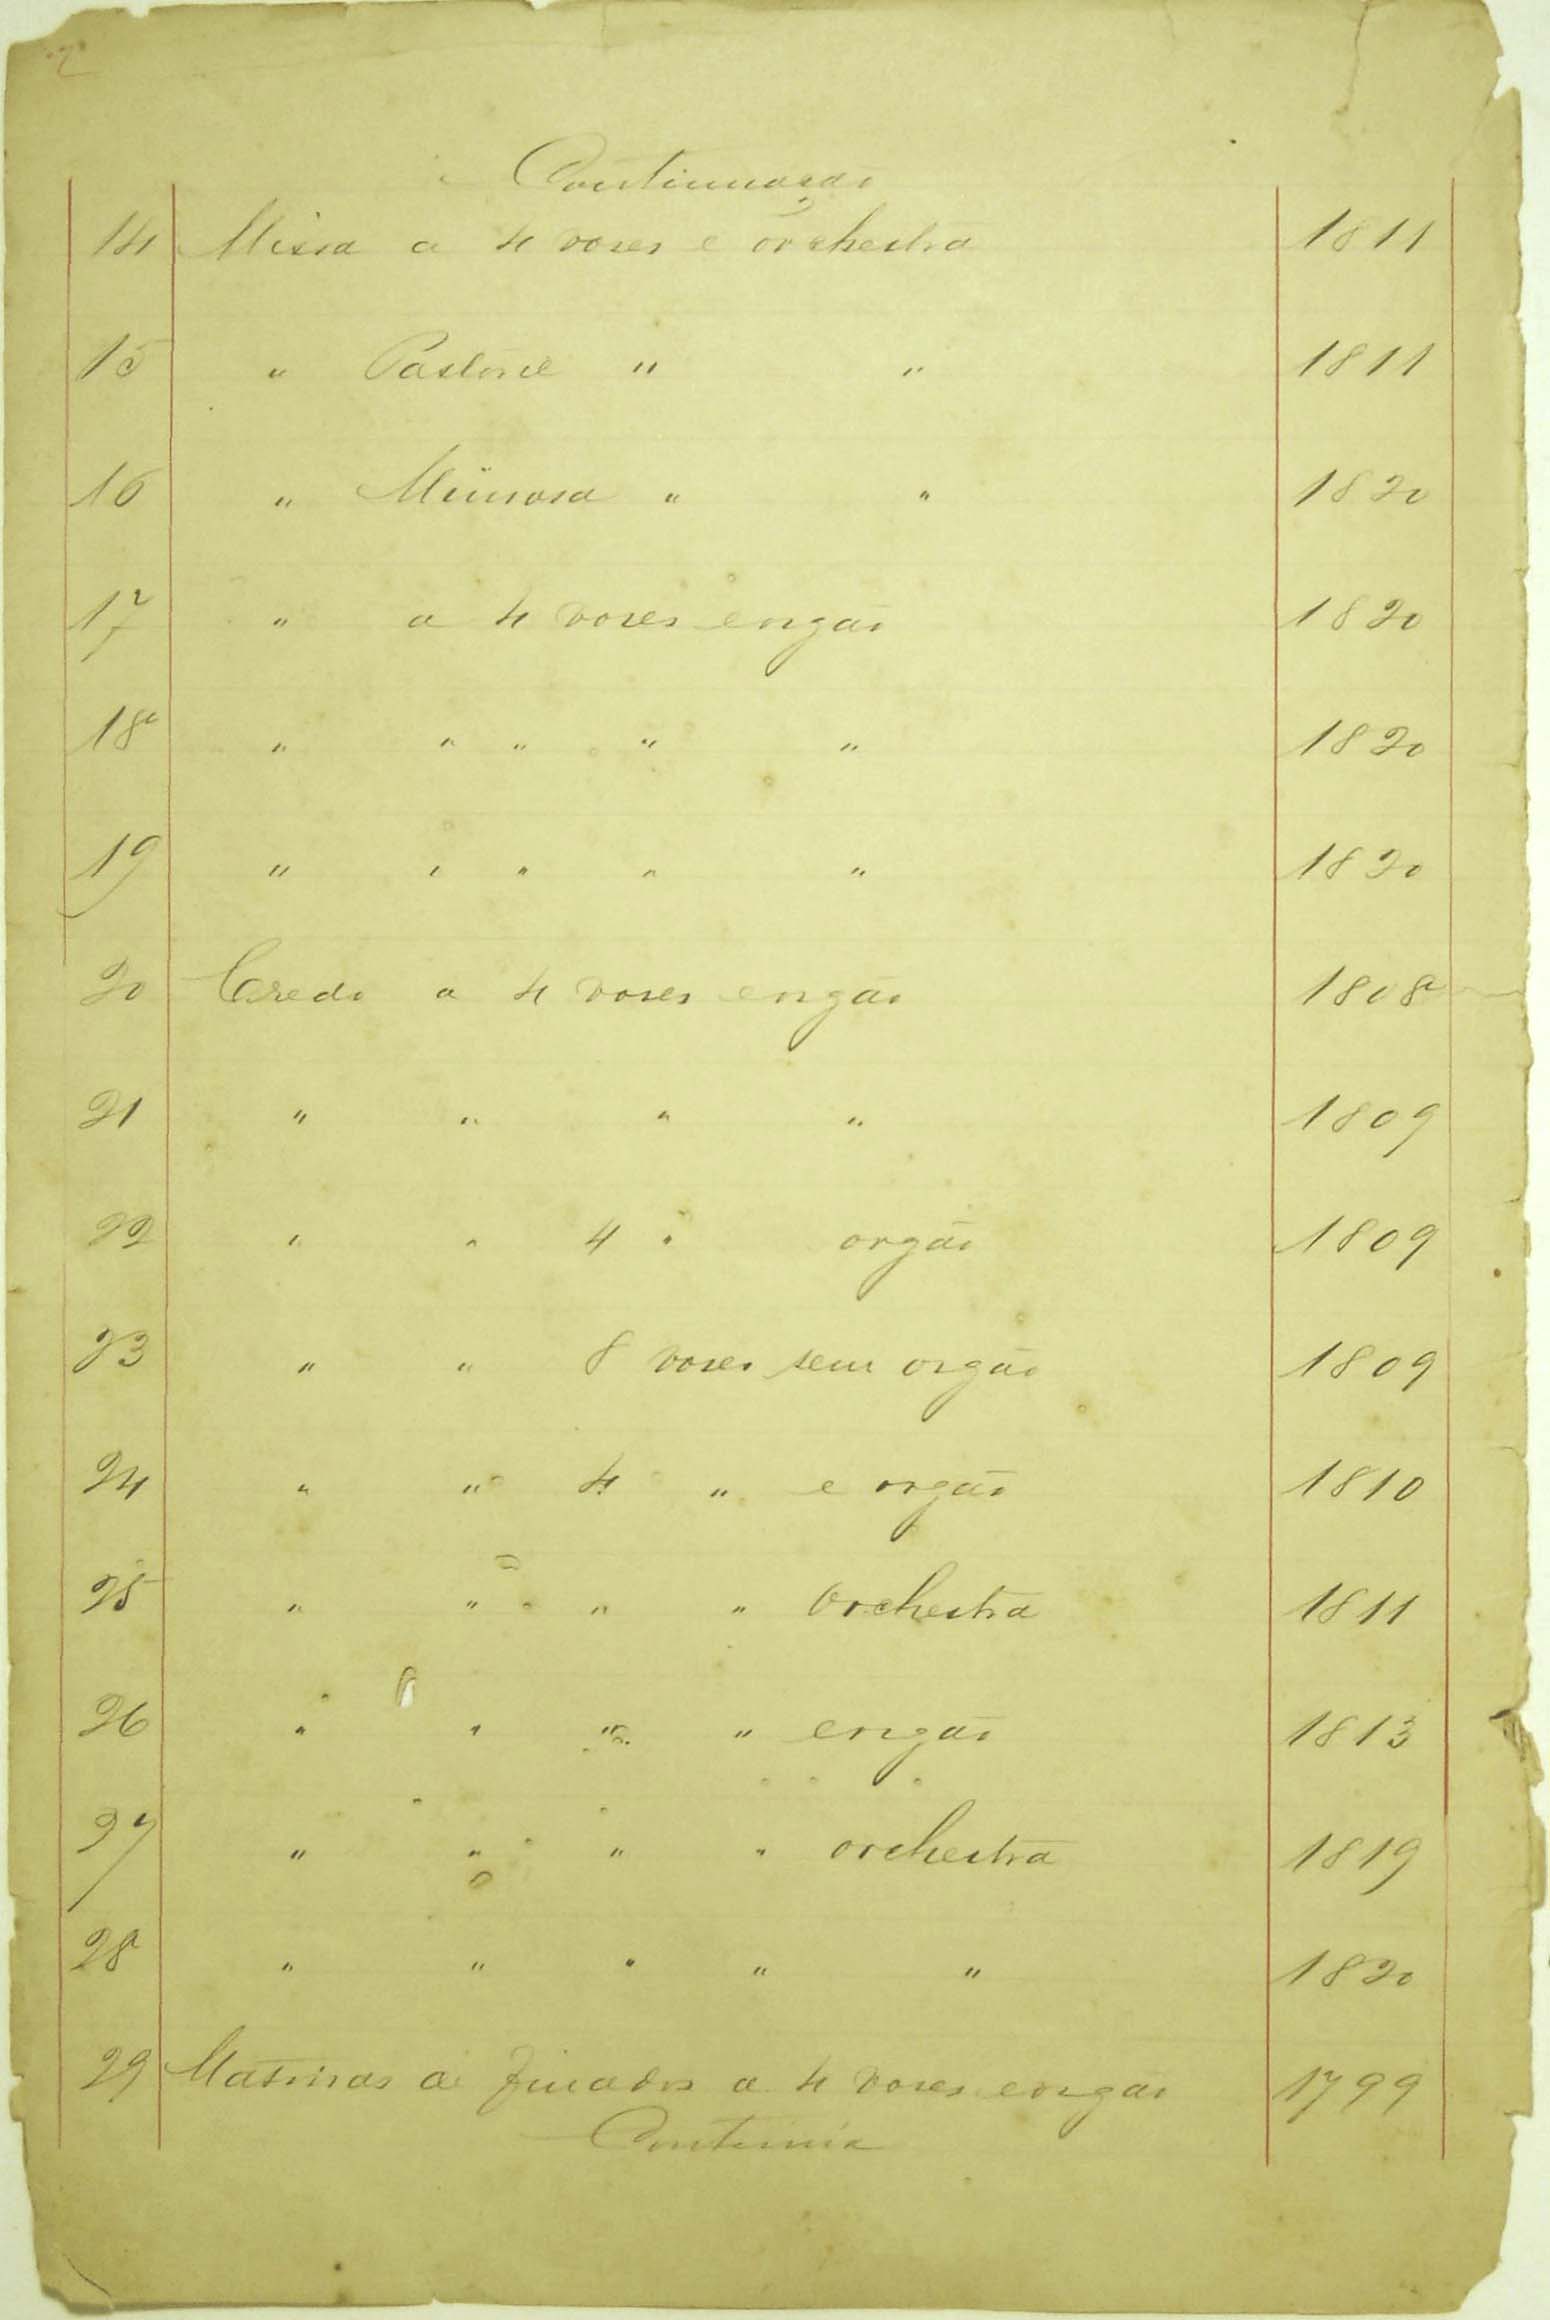 2
Continuação
14 Missa a 4 vozes e orchestra 1811
15 " Pastoril " " 1811
16 " Mimosa " " 1820
17 " a 4 vozes eorgão 1820
18 " " " " " 1820
19 " " " " " 1820
20 Credo a 4 vozes eorgão 1808
21 " " " " 1809
22 " " 4 " orgão 1809
23 " " 8 vozes sem orgão 1809
24 " " 4 " e orgão 1810
25 " " " " Orchestra 1811
26 " " " " eorgão 1813
27 " " " " orchestra 1819
28 " " " " " 1820
29 Matinas de finados a 4 vozes eorgão 1799
Continúa